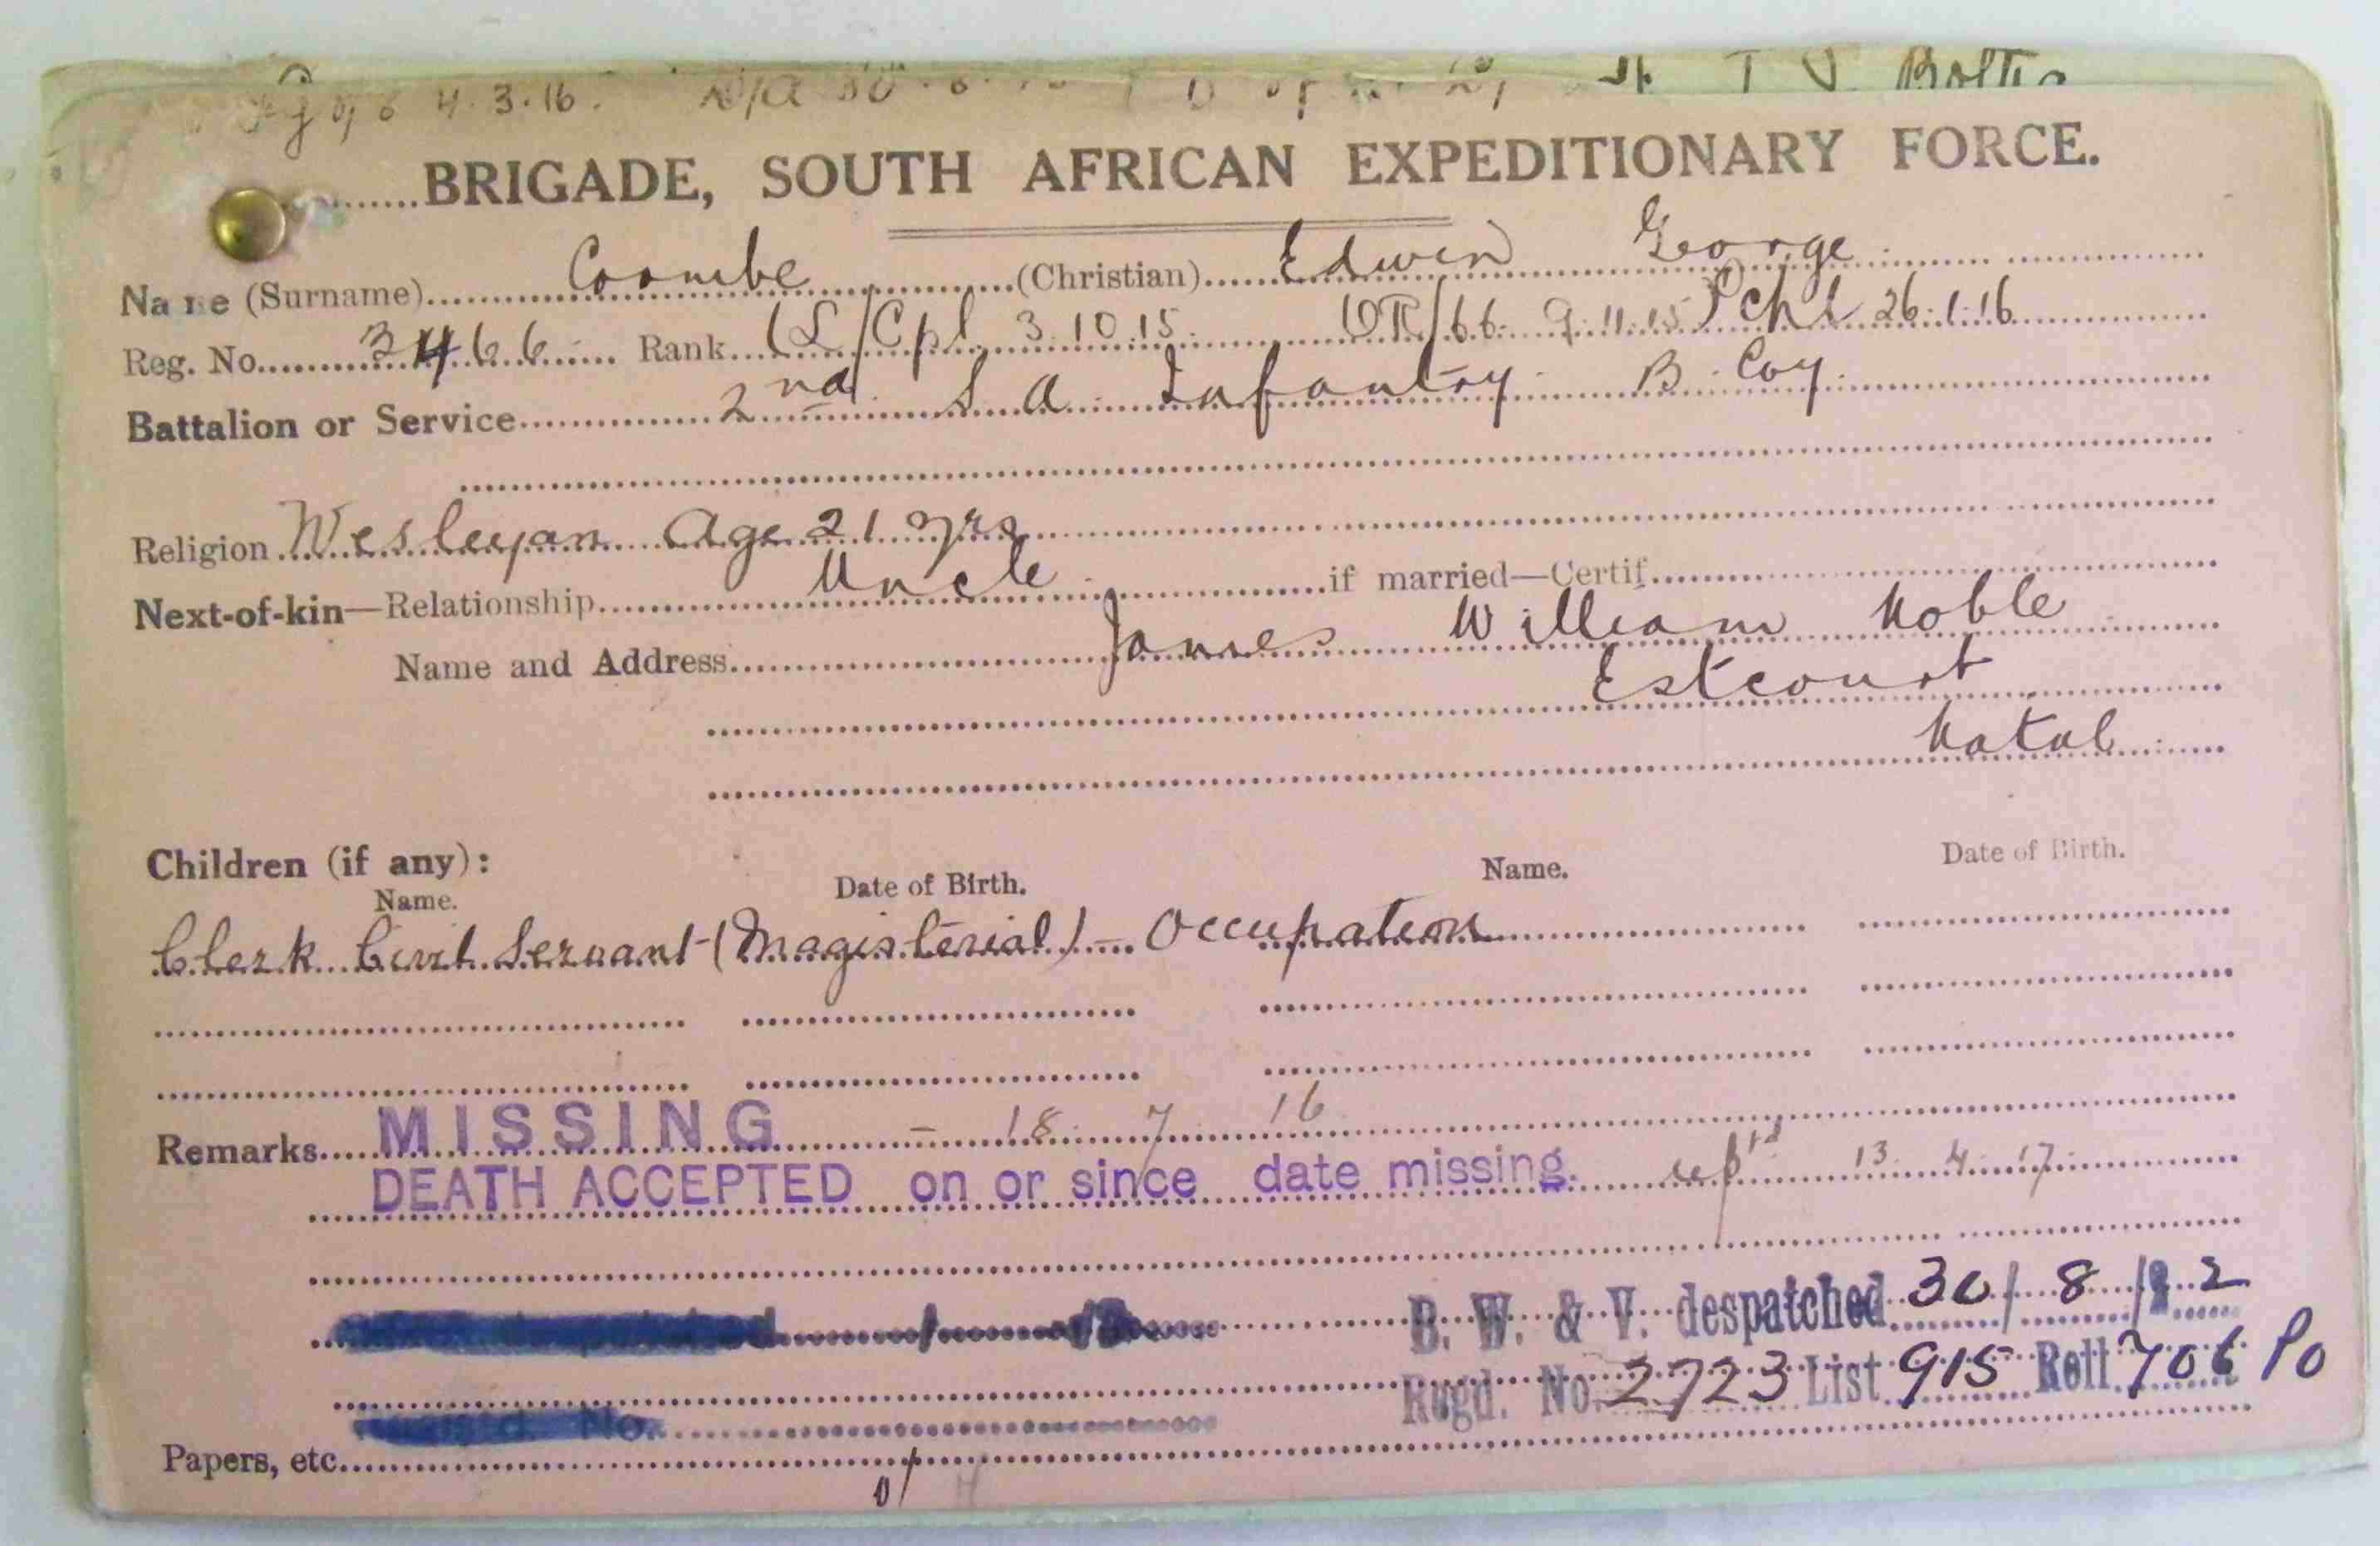 4.3.16. N/A
BRIGADE, SOUTH AFRICAN EXPEDITIONARY FORCE.
Name (Surname) Coombe (Christian) Edwin George
Reg. No. 3466 Rank L/Cpl 3.10.15. 9.11.15 26.1.16
Battalion or Service 2nd S A Infantry B Coy
Religion Wesleyan Age 21 yrs
Next-of-kin—Relationship Uncle if married—Certif.
Name and Address James William Noble
Estcourt
Natal
Children (if any):
Name. Date of Birth. Name. Date of Birth.
Clerk Civil Servant (Magisterial) - Occupation
Remarks MISSING - 18 7 16
DEATH ACCEPTED on or since date missing. 13 4 17
B. W. & V. despatched 30/8/22
Regd. No. 2723 List 915 Roll 706 Po
No.
Papers, etc.